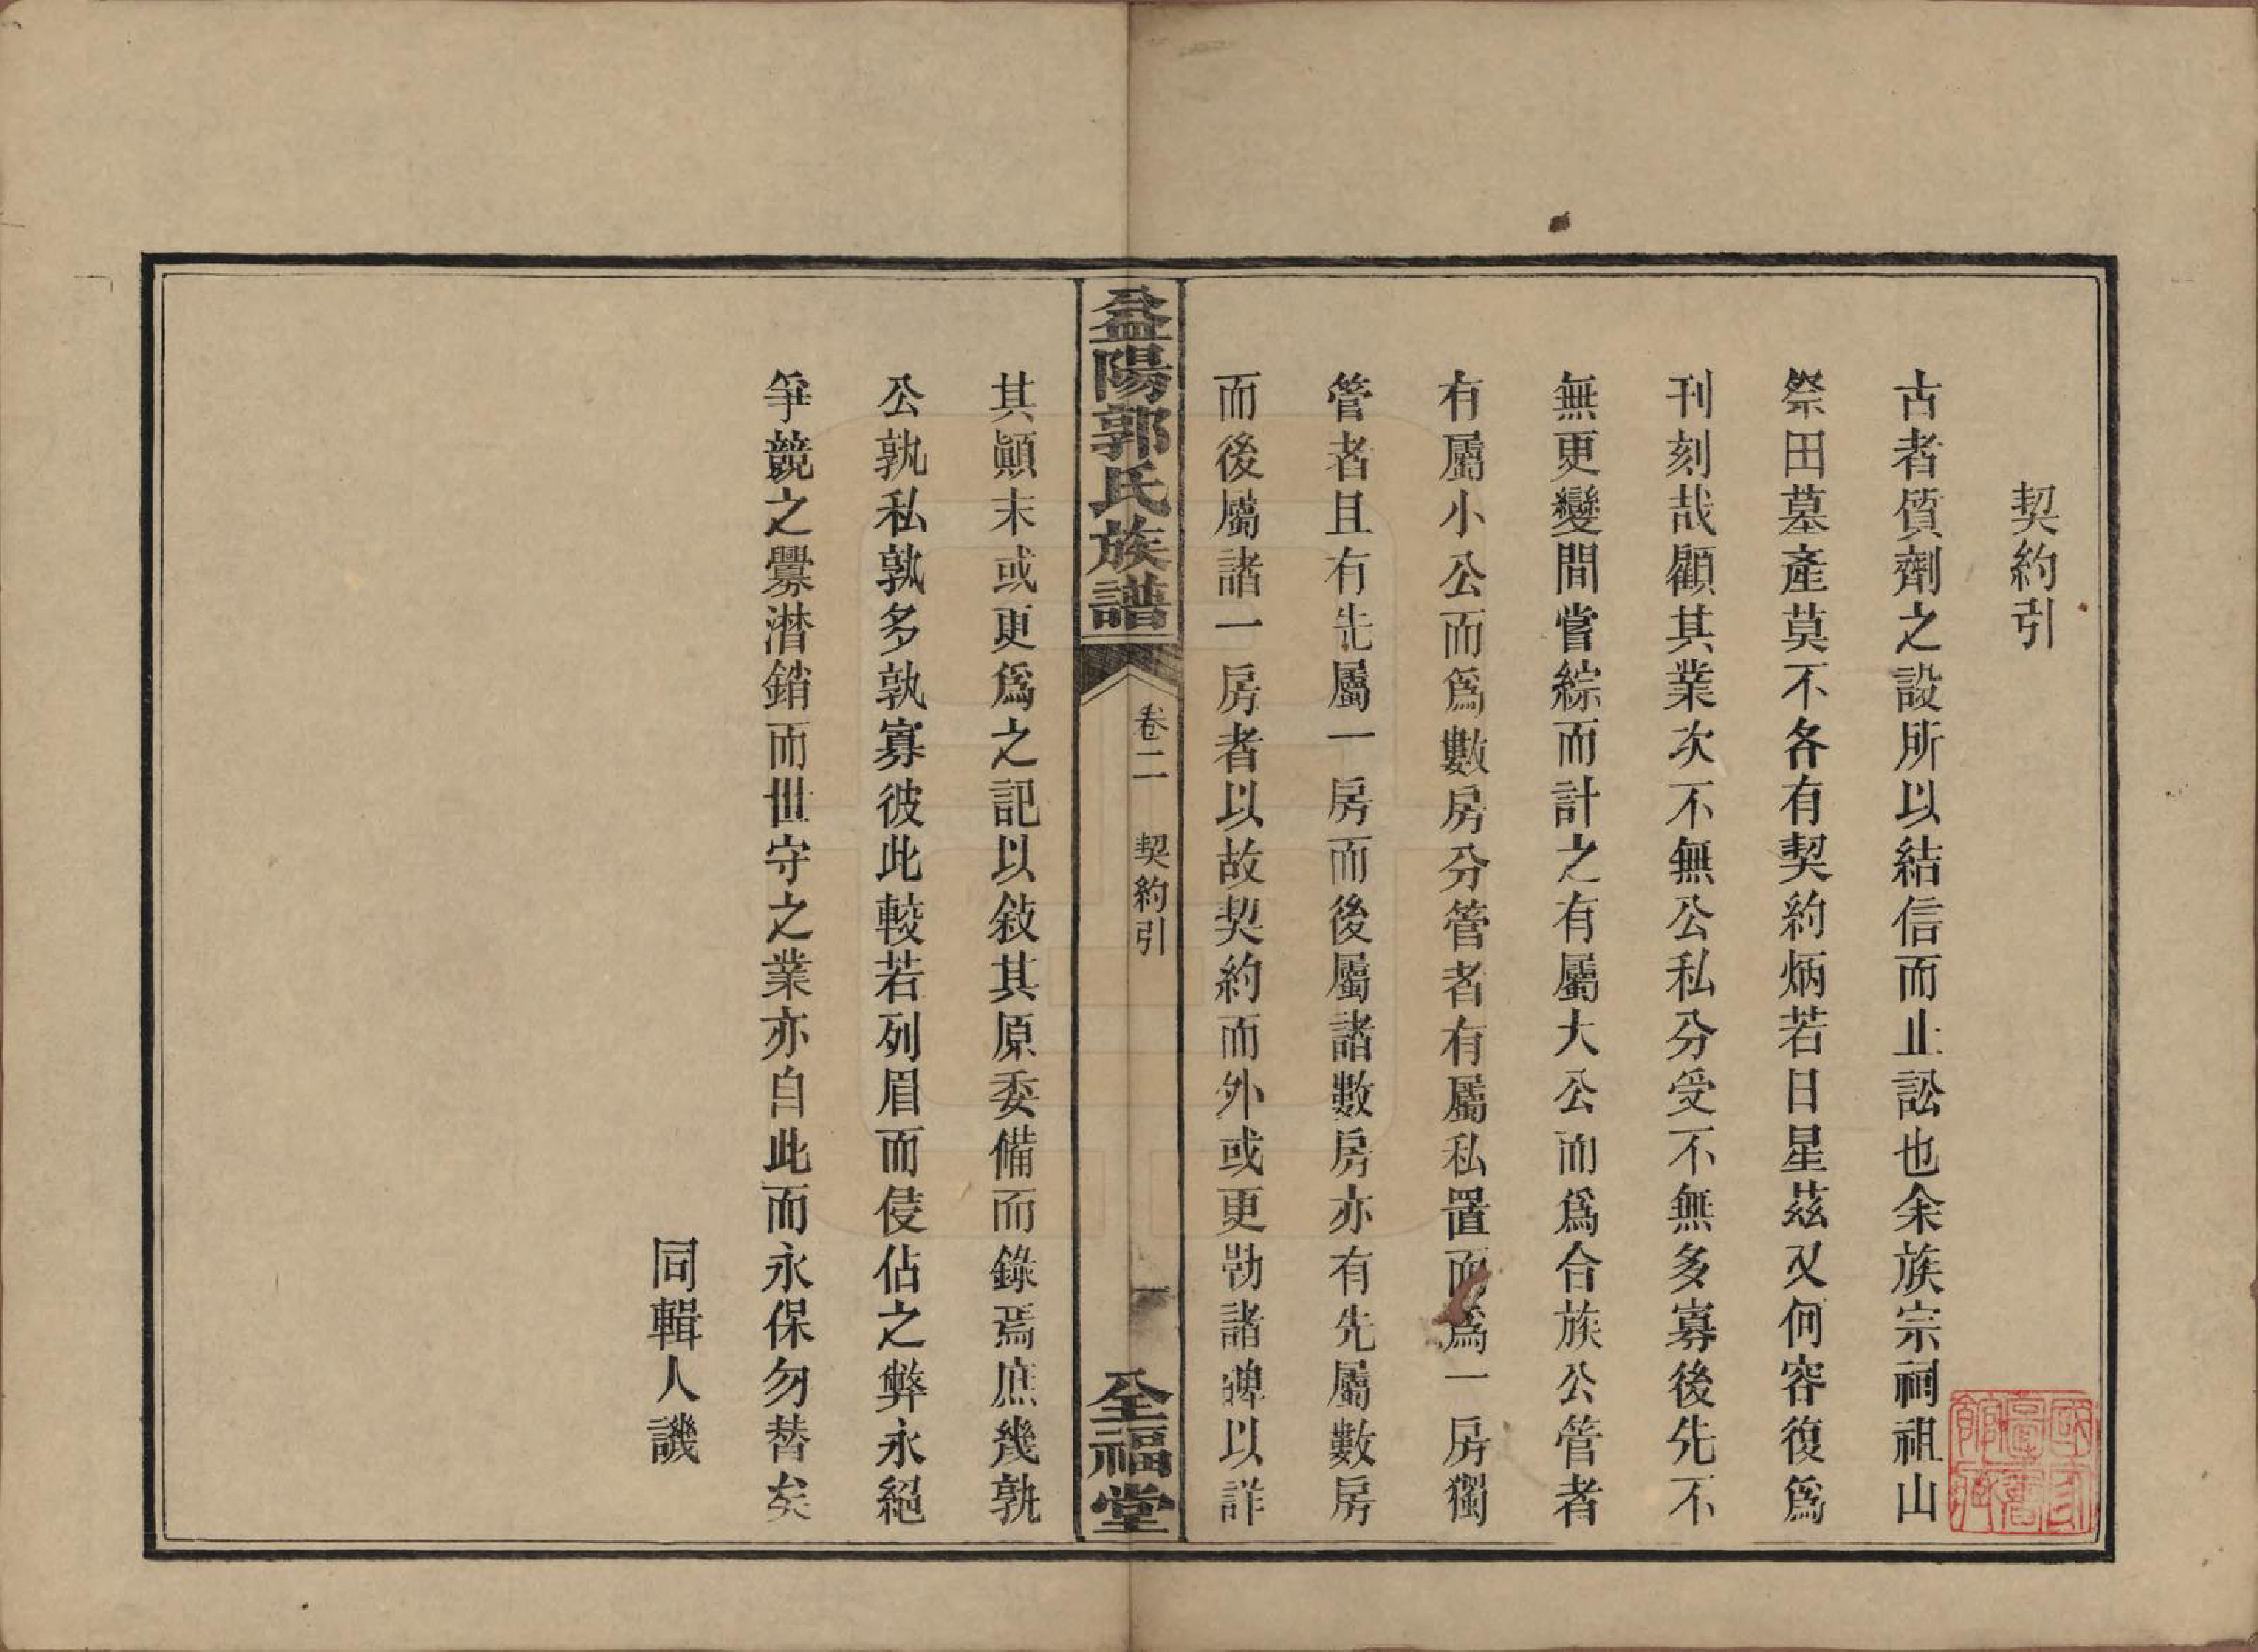 契約引
古者質劑之設所以結信而止訟也余族宗祠祖山
祭田墓產莫不各有契約炳若日星茲又何容復爲
刊刻哉顧其業次不無公私分受不無多寡後先不
無更變間嘗綜而計之有屬大公而爲合族公管者
有屬小公而爲數房分管者有屬私置而爲一房獨
管者且有先屬一房而後屬諸數房亦有先屬數房
而後屬諸一房者以故契約而外或更勒諸碑以詳
益陽郭氏族譜
卷二 契約引
一
全福堂
其顚末或更爲之記以敍其原委備而錄焉庶幾孰
公孰私孰多孰寡彼此較若列眉而侵佔之弊永絕
爭競之釁潛銷而世守之業亦自此而永保勿替矣
同輯人譏
國家
圖書
館藏